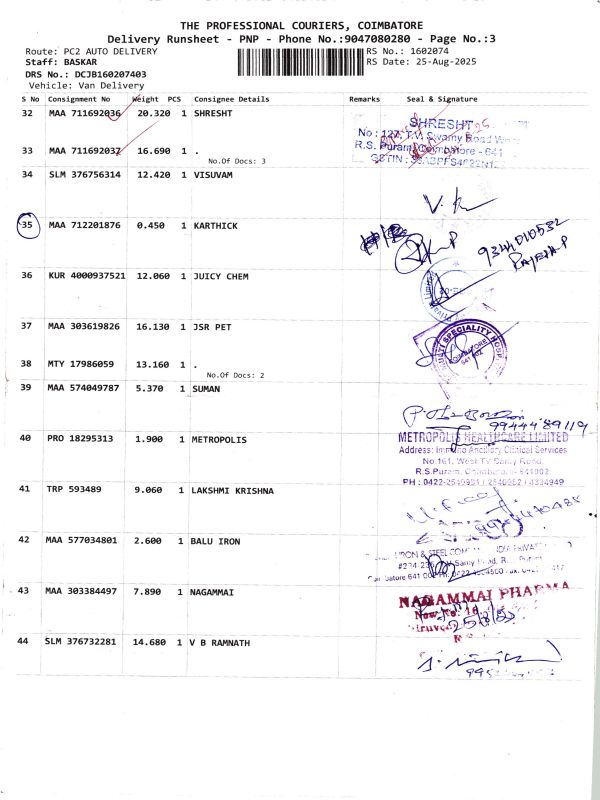 THE PROFESSIONAL COURIERS, COIMBATORE
Delivery Runsheet - PNP - Phone No.:9047080280 - Page No.:3
Route: PC2 AUTO DELIVERY
RS No.: 1602074
Staff: BASKAR
RS Date: 25-Aug-2025
DRS No.: DCJB160207403
Vehicle: Van Delivery
S No Consignment No Weight PCS Consignee Details Remarks Seal & Signature
32 MAA 711692036 20.320 1 SHRESHT
SHRESHT
No : 127, T.V. Swamy Road
R.S. Puram, Coimbatore - 641
GSTIN :
33 MAA 711692037 16.690 1 .
No.Of Docs: 3
34 SLM 376756314 12.420 1 VISUVAM
35 MAA 712201876 0.450 1 KARTHICK
9344010532
36 KUR 4000937521 12.060 1 JUICY CHEM
37 MAA 303619826 16.130 1 JSR PET
MULTI SPECIALITY HOSP
COIMBATORE
38 MTY 17986059 13.160 1 .
No.Of Docs: 2
39 MAA 574049787 5.370 1 SUMAN
9944489119
40 PRO 18295313 1.900 1 METROPOLIS
METROPOLIS HEALTHCARE LIMITED
Address: Immuno Ancillary Clinical Services
No.161, West TV Samy Road,
R.S.Puram, Coimbatore- 641002.
PH : 0422-
41 TRP 593489 9.060 1 LAKSHMI KRISHNA
42 MAA 577034801 2.600 1 BALU IRON
IRON & STEEL
43 MAA 303384497 7.890 1 NAGAMMAI
NAGAMMAI PHARMA
44 SLM 376732281 14.680 1 V B RAMNATH